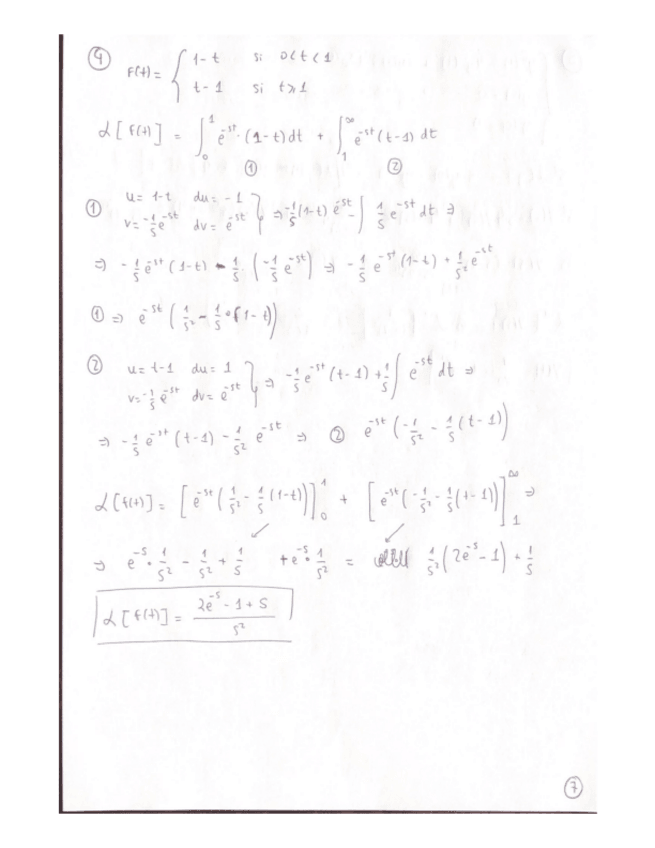 ④ F(t) = { 1-t si 0<t<1
t-1 si t⩾1
ℒ[f(t)] = ∫₀¹ e^{-st}·(1-t)dt + ∫₁^∞ e^{-st}(t-1)dt
① ②
① u=1-t du=-1 } ⇒ -1/s(1-t)e^{-st} - ∫ 1/s e^{-st} dt ⇒
v=-1/s e^{-st} dv=e^{-st}
⇒ -1/s e^{-st}(1-t) - 1/s·(-1/s e^{-st}) ⇒ -1/s e^{-st}(1-t) + 1/s² e^{-st}
① ⇒ e^{-st}(1/s² - 1/s·(1-t))
② u=t-1 du=1 } ⇒ -1/s e^{-st}(t-1) + 1/s ∫ e^{-st} dt ⇒
v=-1/s e^{-st} dv=e^{-st}
⇒ -1/s e^{-st}(t-1) - 1/s² e^{-st} ⇒ ② e^{-st}(-1/s² - 1/s(t-1))
ℒ[f(t)] = [e^{-st}(1/s² - 1/s(1-t))]₀¹ + [e^{-st}(-1/s² - 1/s(t-1))]₁^∞ ⇒
⇒ e^{-s}·1/s² - 1/s² + 1/s + e^{-s}·1/s² = 1/s²(2e^{-s} - 1) + 1/s
ℒ[f(t)] = (2e^{-s} - 1 + s)/s²
⑦